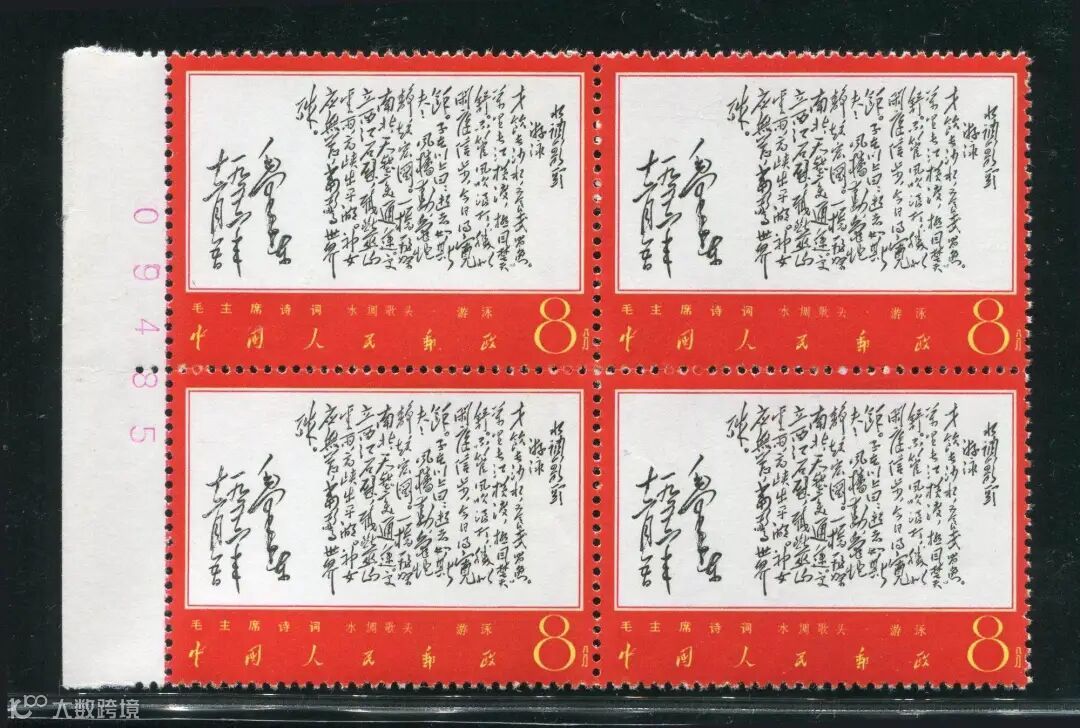 09485
水调歌头
游泳
才饮长沙水，又食武昌鱼。
万里长江横渡，极目楚天
舒。不管风吹浪打，胜似
闲庭信步，今日得宽
馀。子在川上曰：逝者如斯
夫！风樯动，龟蛇
静，起宏图。一桥飞架
南北，天堑变通途。更
立西江石壁，截断巫山
云雨，高峡出平湖。神女
应无恙，当惊世界
殊。
毛泽东
一九五六年
十二月五日
毛主席诗词 水调歌头·游泳
中國人民郵政 8分
水调歌头
游泳
才饮长沙水，又食武昌鱼。
万里长江横渡，极目楚天
舒。不管风吹浪打，胜似
闲庭信步，今日得宽
馀。子在川上曰：逝者如斯
夫！风樯动，龟蛇
静，起宏图。一桥飞架
南北，天堑变通途。更
立西江石壁，截断巫山
云雨，高峡出平湖。神女
应无恙，当惊世界
殊。
毛泽东
一九五六年
十二月五日
毛主席诗词 水调歌头·游泳
中國人民郵政 8分
水调歌头
游泳
才饮长沙水，又食武昌鱼。
万里长江横渡，极目楚天
舒。不管风吹浪打，胜似
闲庭信步，今日得宽
馀。子在川上曰：逝者如斯
夫！风樯动，龟蛇
静，起宏图。一桥飞架
南北，天堑变通途。更
立西江石壁，截断巫山
云雨，高峡出平湖。神女
应无恙，当惊世界
殊。
毛泽东
一九五六年
十二月五日
毛主席诗词 水调歌头·游泳
中國人民郵政 8分
水调歌头
游泳
才饮长沙水，又食武昌鱼。
万里长江横渡，极目楚天
舒。不管风吹浪打，胜似
闲庭信步，今日得宽
馀。子在川上曰：逝者如斯
夫！风樯动，龟蛇
静，起宏图。一桥飞架
南北，天堑变通途。更
立西江石壁，截断巫山
云雨，高峡出平湖。神女
应无恙，当惊世界
殊。
毛泽东
一九五六年
十二月五日
毛主席诗词 水调歌头·游泳
中國人民郵政 8分
大数跨境